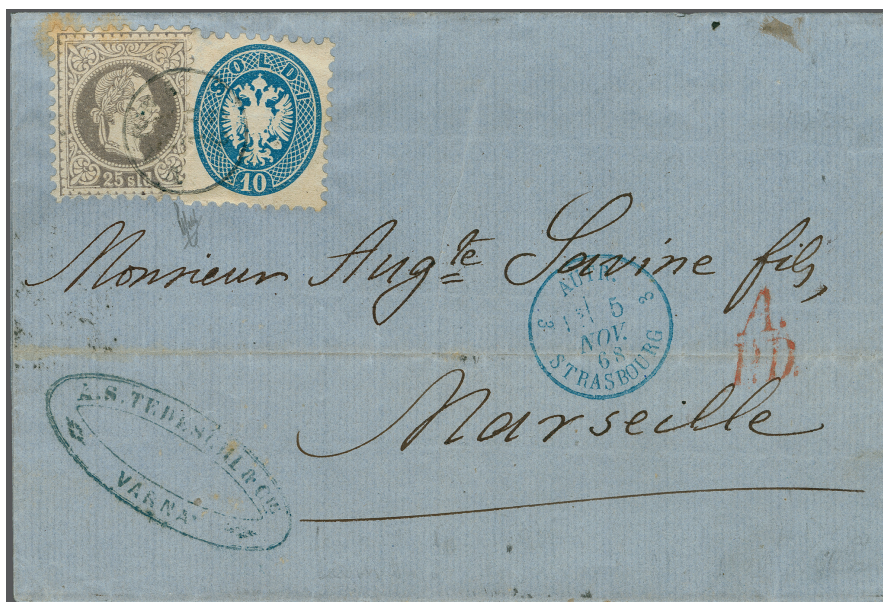 25 sld
SOLDI
10
Monsieur Aug^te Savine fils,
AUTR.
3 5 3
NOV.
68
STRASBOURG
A.
P.D.
Marseille
A.S. TEDESCHI & C^ie
VARNA